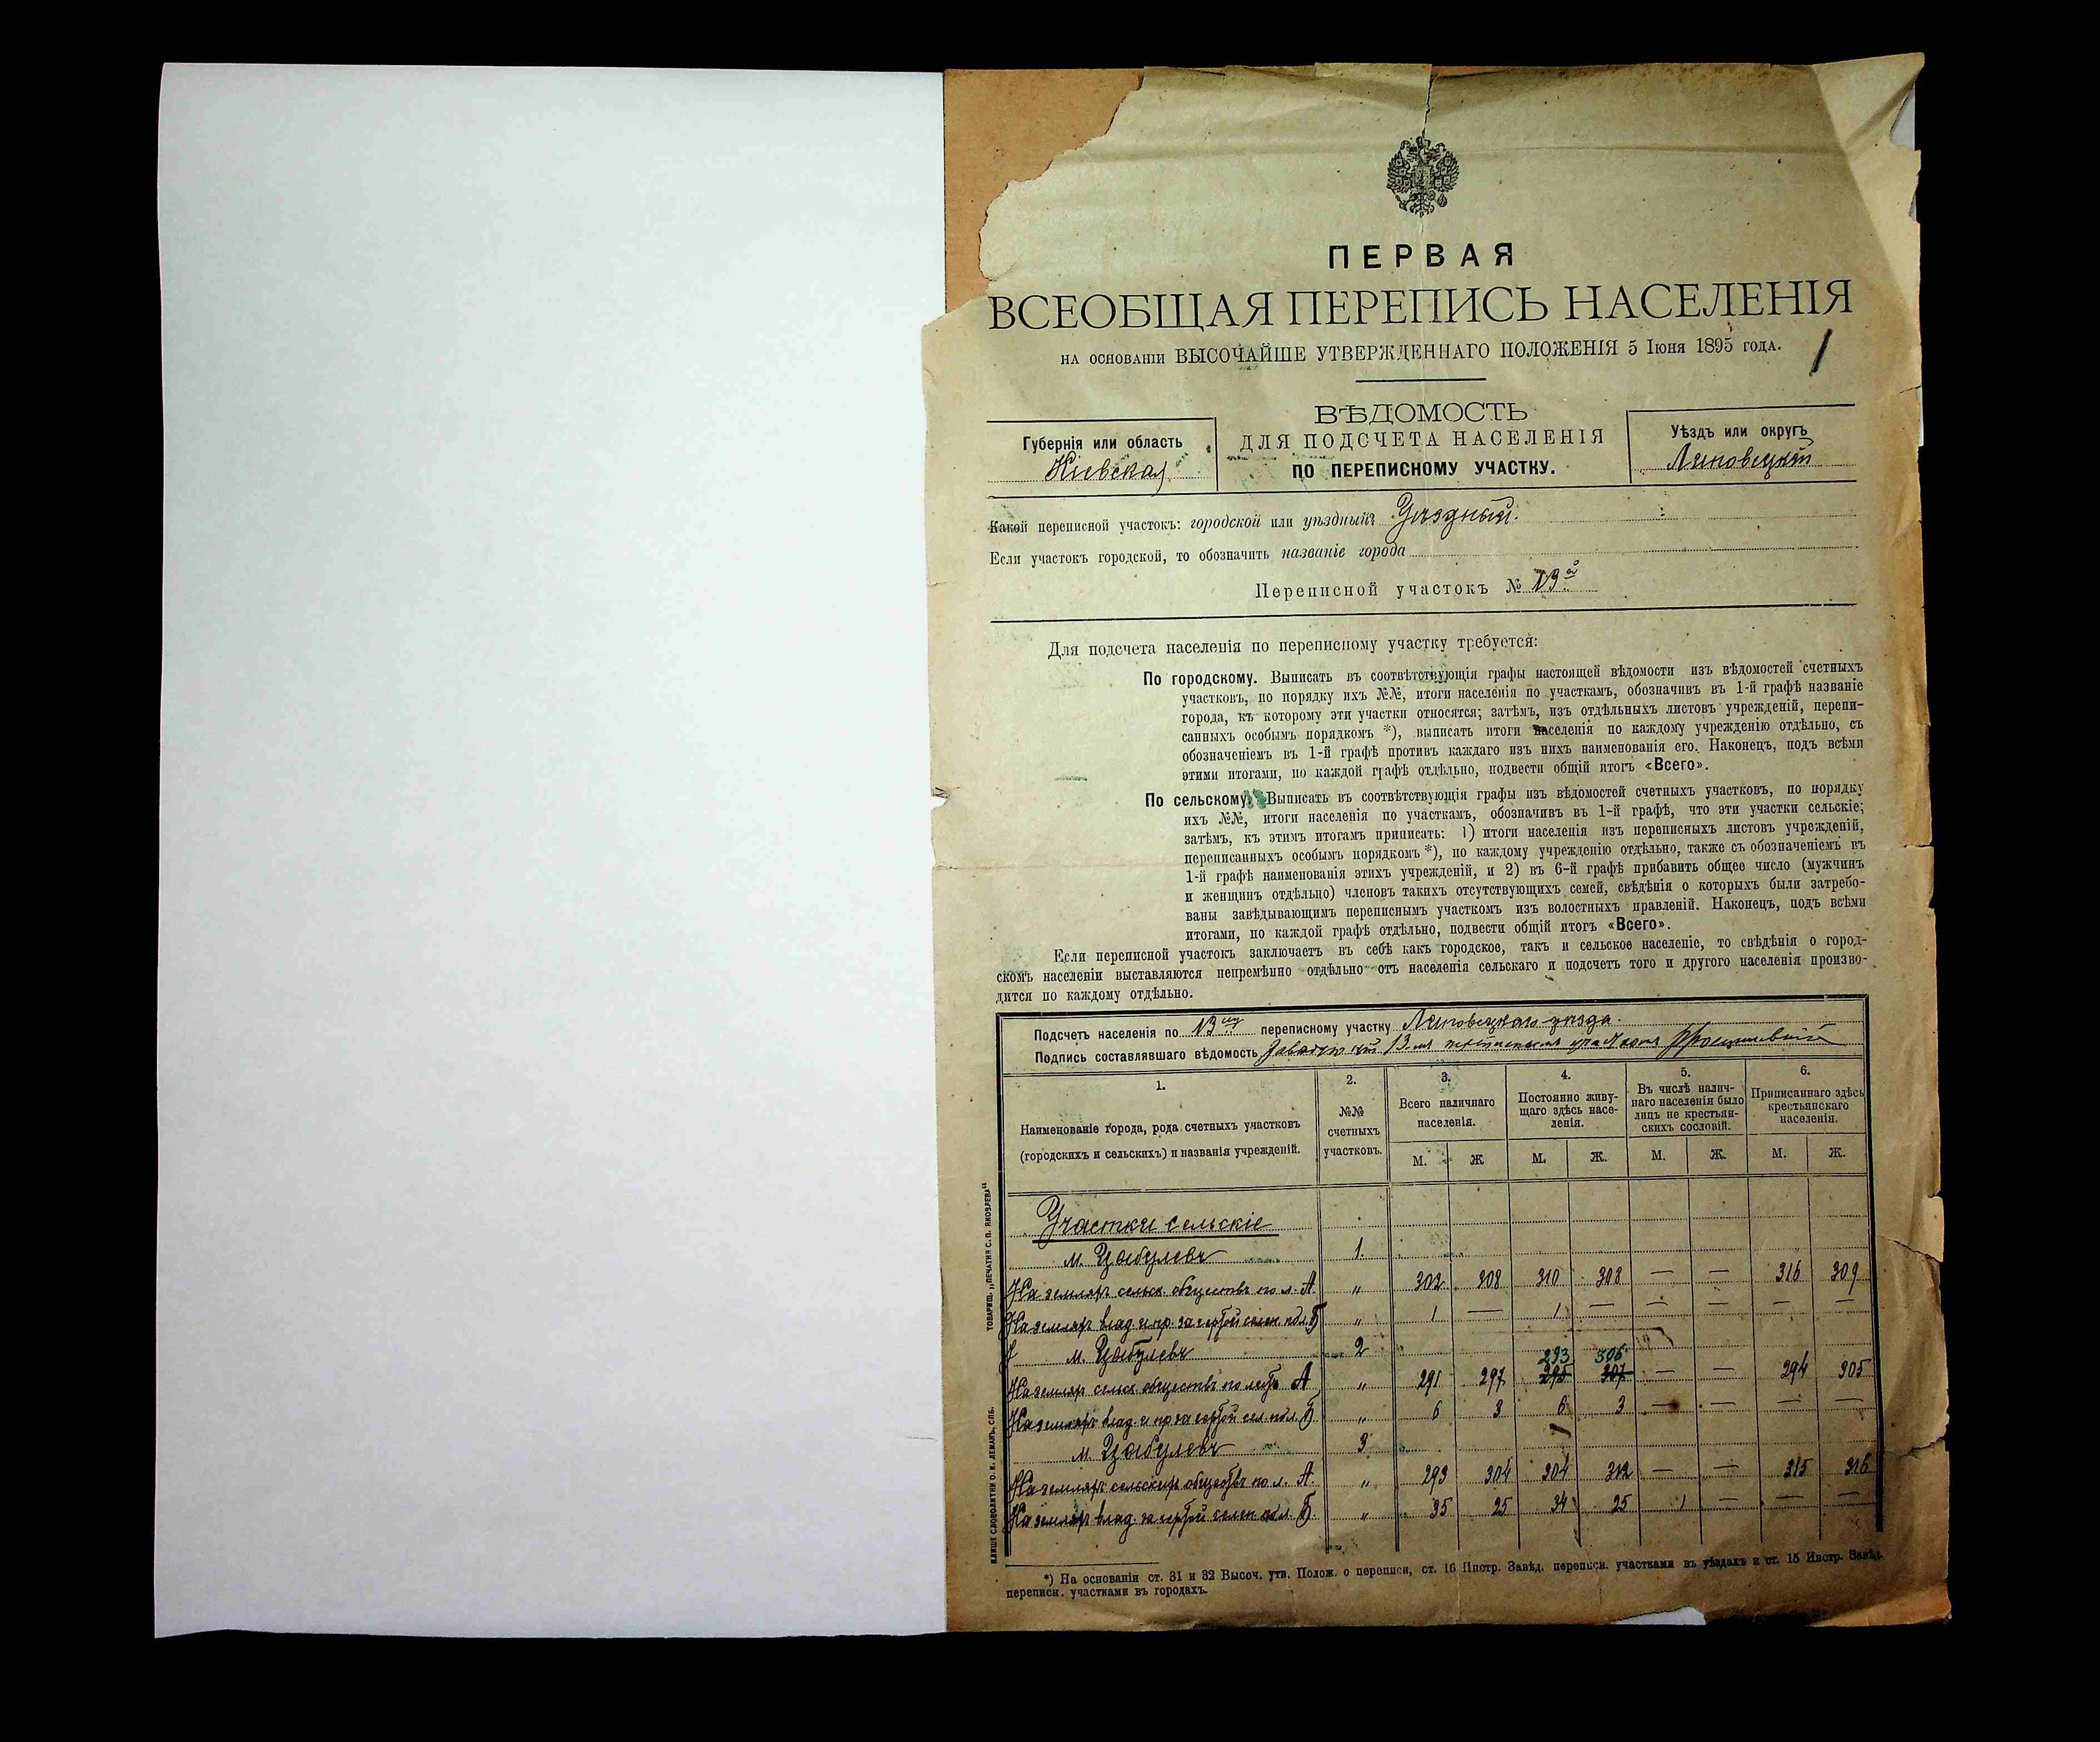 ПЕРВАЯ
ВСЕОБЩАЯ ПЕРЕПИСЬ НАСЕЛЕНІЯ
НА ОСНОВАНІИ ВЫСОЧАЙШЕ УТВЕРЖДЕННАГО ПОЛОЖЕНІЯ 5 Іюня 1895 ГОДА.
1
ВѢДОМОСТЬ
ДЛЯ ПОДСЧЕТА НАСЕЛЕНІЯ
ПО ПЕРЕПИСНОМУ УЧАСТКУ.
Губернія или область
Кіевская
Уѣздъ или округъ
Липовецкій
Какой переписной участокъ: городской или уѣздный? Уѣздный.
Если участокъ городской, то обозначить названіе города
Переписной участокъ № 13й
Для подсчета населенія по переписному участку требуется:
По городскому. Выписать въ соотвѣтствующія графы настоящей вѣдомости изъ вѣдомостей счетныхъ
участковъ, по порядку ихъ №№, итоги населенія по участкамъ, обозначивъ въ 1-й графѣ названіе
города, къ которому эти участки относятся; затѣмъ, изъ отдѣльныхъ листовъ учрежденій, перепи-
санныхъ особымъ порядкомъ *), выписать итоги населенія по каждому учрежденію отдѣльно, съ
обозначеніемъ въ 1-й графѣ противъ каждаго изъ нихъ наименованія его. Наконецъ, подъ всѣми
этими итогами, по каждой графѣ отдѣльно, подвести общій итогъ «Всего».
По сельскому. Выписать въ соотвѣтствующія графы изъ вѣдомостей счетныхъ участковъ, по порядку
ихъ №№, итоги населенія по участкамъ, обозначивъ въ 1-й графѣ, что эти участки сельскіе;
затѣмъ, къ этимъ итогамъ приписать: 1) итоги населенія изъ переписныхъ листовъ учрежденій,
переписанныхъ особымъ порядкомъ *), по каждому учрежденію отдѣльно, также съ обозначеніемъ въ
1-й графѣ наименованія этихъ учрежденій, и 2) въ 6-й графѣ прибавить общее число (мужчинъ
и женщинъ отдѣльно) членовъ такихъ отсутствующихъ семей, свѣдѣнія о которыхъ были затребо-
ваны завѣдывающимъ переписнымъ участкомъ изъ волостныхъ правленій. Наконецъ, подъ всѣми
итогами, по каждой графѣ отдѣльно, подвести общій итогъ «Всего».
Если переписной участокъ заключаетъ въ себѣ какъ городское, такъ и сельское населеніе, то свѣдѣнія о город-
скомъ населеніи выставляются непремѣнно отдѣльно отъ населенія сельскаго и подсчетъ того и другого населенія произво-
дится по каждому отдѣльно.
Подсчетъ населенія по 13му переписному участку Липовецкаго уѣзда.
Подпись составлявшаго вѣдомость 13-мъ
1.
Наименованіе города, рода счетныхъ участковъ
(городскихъ и сельскихъ) и названія учрежденій.
2.
№№
счетныхъ
участковъ.
3.
Всего наличнаго
населенія.
4.
Постоянно живу-
щаго здѣсь насе-
ленія.
5.
Въ числѣ налич-
наго населенія было
лицъ не крестьян-
скихъ сословій.
6.
Приписаннаго здѣсь
крестьянскаго
населенія.
М. Ж М. Ж. М. Ж. М. Ж.
Участки сельскіе
м. Цыбулевъ 1.
На земляхъ сельск. обществъ по л. А " 302 308 310 308 — — 316 309
На земляхъ влад. и пр. за чертой селен. по л. Б " 1 — 1 — — — — —
м. Цыбулевъ 2
293 306
На земляхъ сельск. обществъ по л. А " 291 297 295 307 — — 294 305
На земляхъ влад. и пр. за чертой сел. по л. Б " 6 3 6 3 — — — —
м. Цыбулевъ 3
На земляхъ сельскихъ обществъ по л. А. " 293 304 304 312 — — 315 316
На земляхъ влад. за чертой селен. по л. Б. " 35 25 34 25 1 — — —
*) На основаніи ст. 31 и 32 Высоч. утв. Полож. о переписи, ст. 16 Инстр. Завѣд. переписн. участками въ уѣздахъ и ст. 15 Инстр. Завѣд.
переписн. участками въ городахъ.
ТОВАРИЩ. „ПЕЧАТНЯ С. П. ЯКОВЛЕВА“
КЛИШЕ СЛОВОЛИТНИ О. И. ЛЕМАНЪ, СПБ.